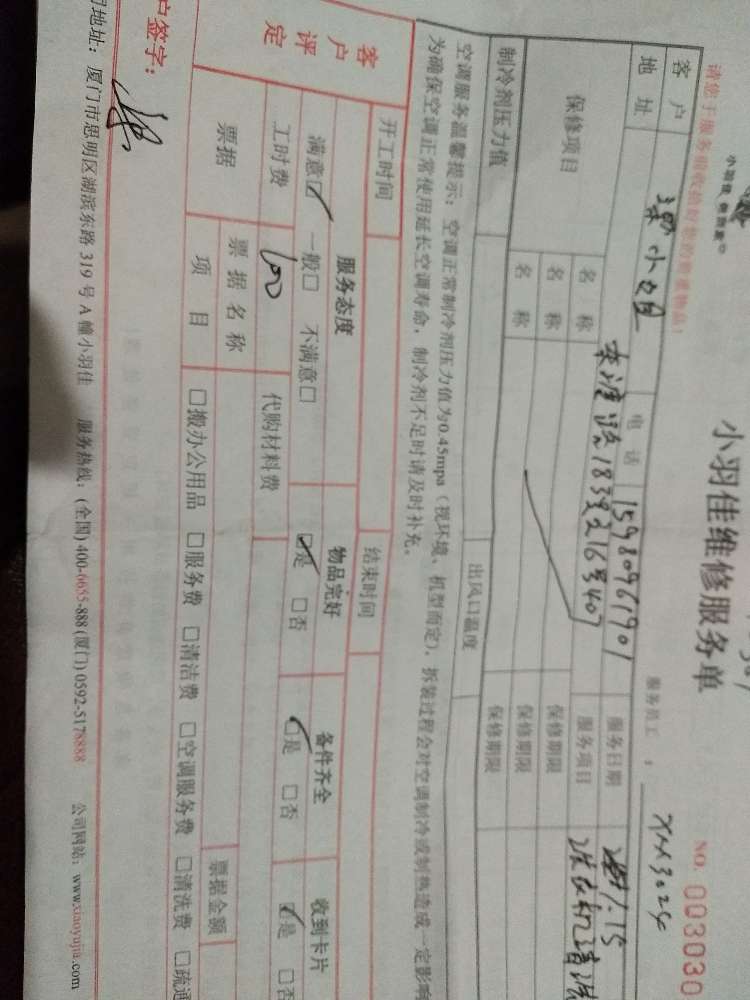 小羽佳维修服务单
NO. 003030
请您于服务前收拾好您的贵重物品!
服务员工: XM3024
客户 梁小姐 电话 15980961901 服务日期 15
地址 183 216号407 服务项目 洗衣机清洗
保修项目 名称 保修期限
名称 保修期限
名称 保修期限
制冷剂压力值 出风口温度
空调服务温馨提示:空调正常制冷剂压力值为0.45mpa(视环境、机型而定),拆装过程会对空调制冷或制热造成一定影响
为确保空调正常使用延长空调寿命,制冷剂不足时请及时补充。
开工时间 结束时间
客户评定 服务态度 物品完好 备件齐全 收到卡片
满意☑ 一般□ 不满意□ ☑是 □否 ☑是 □否 ☑是 □否
工时费 100 代购材料费
票据 票据名称 票据金额
项目 □搬办公用品 □服务费 □清洁费 □空调服务费 □清洗费 □疏通
户签字:
司地址:厦门市思明区湖滨东路319号A幢小羽佳 服务热线:(全国)400-6655-888(厦门)0592-5178888 公司网站:www.xiaoyujia.com